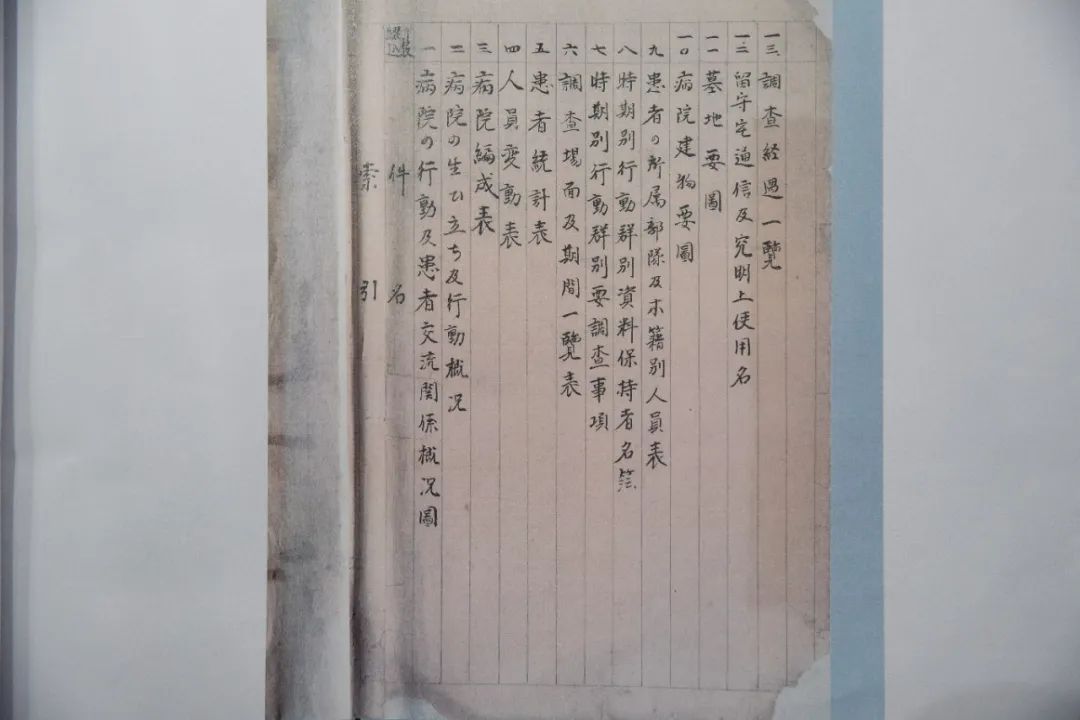 索引
件名
一 病院の行動及患者交流関係概況圖
二 病院の生ひ立ち及行動概况
三 病院編成表
四 人員変動表
五 患者統計表
六 調査場面及期間一覧表
七 時期別行動群別要調査事項
八 時期別行動群別資料保持者名簿
九 患者の所属部隊及本籍別人員表
一〇 病院建物要圖
一一 墓地要圖
一二 留守宅通信及究明上使用名
一三 調査経過一覧